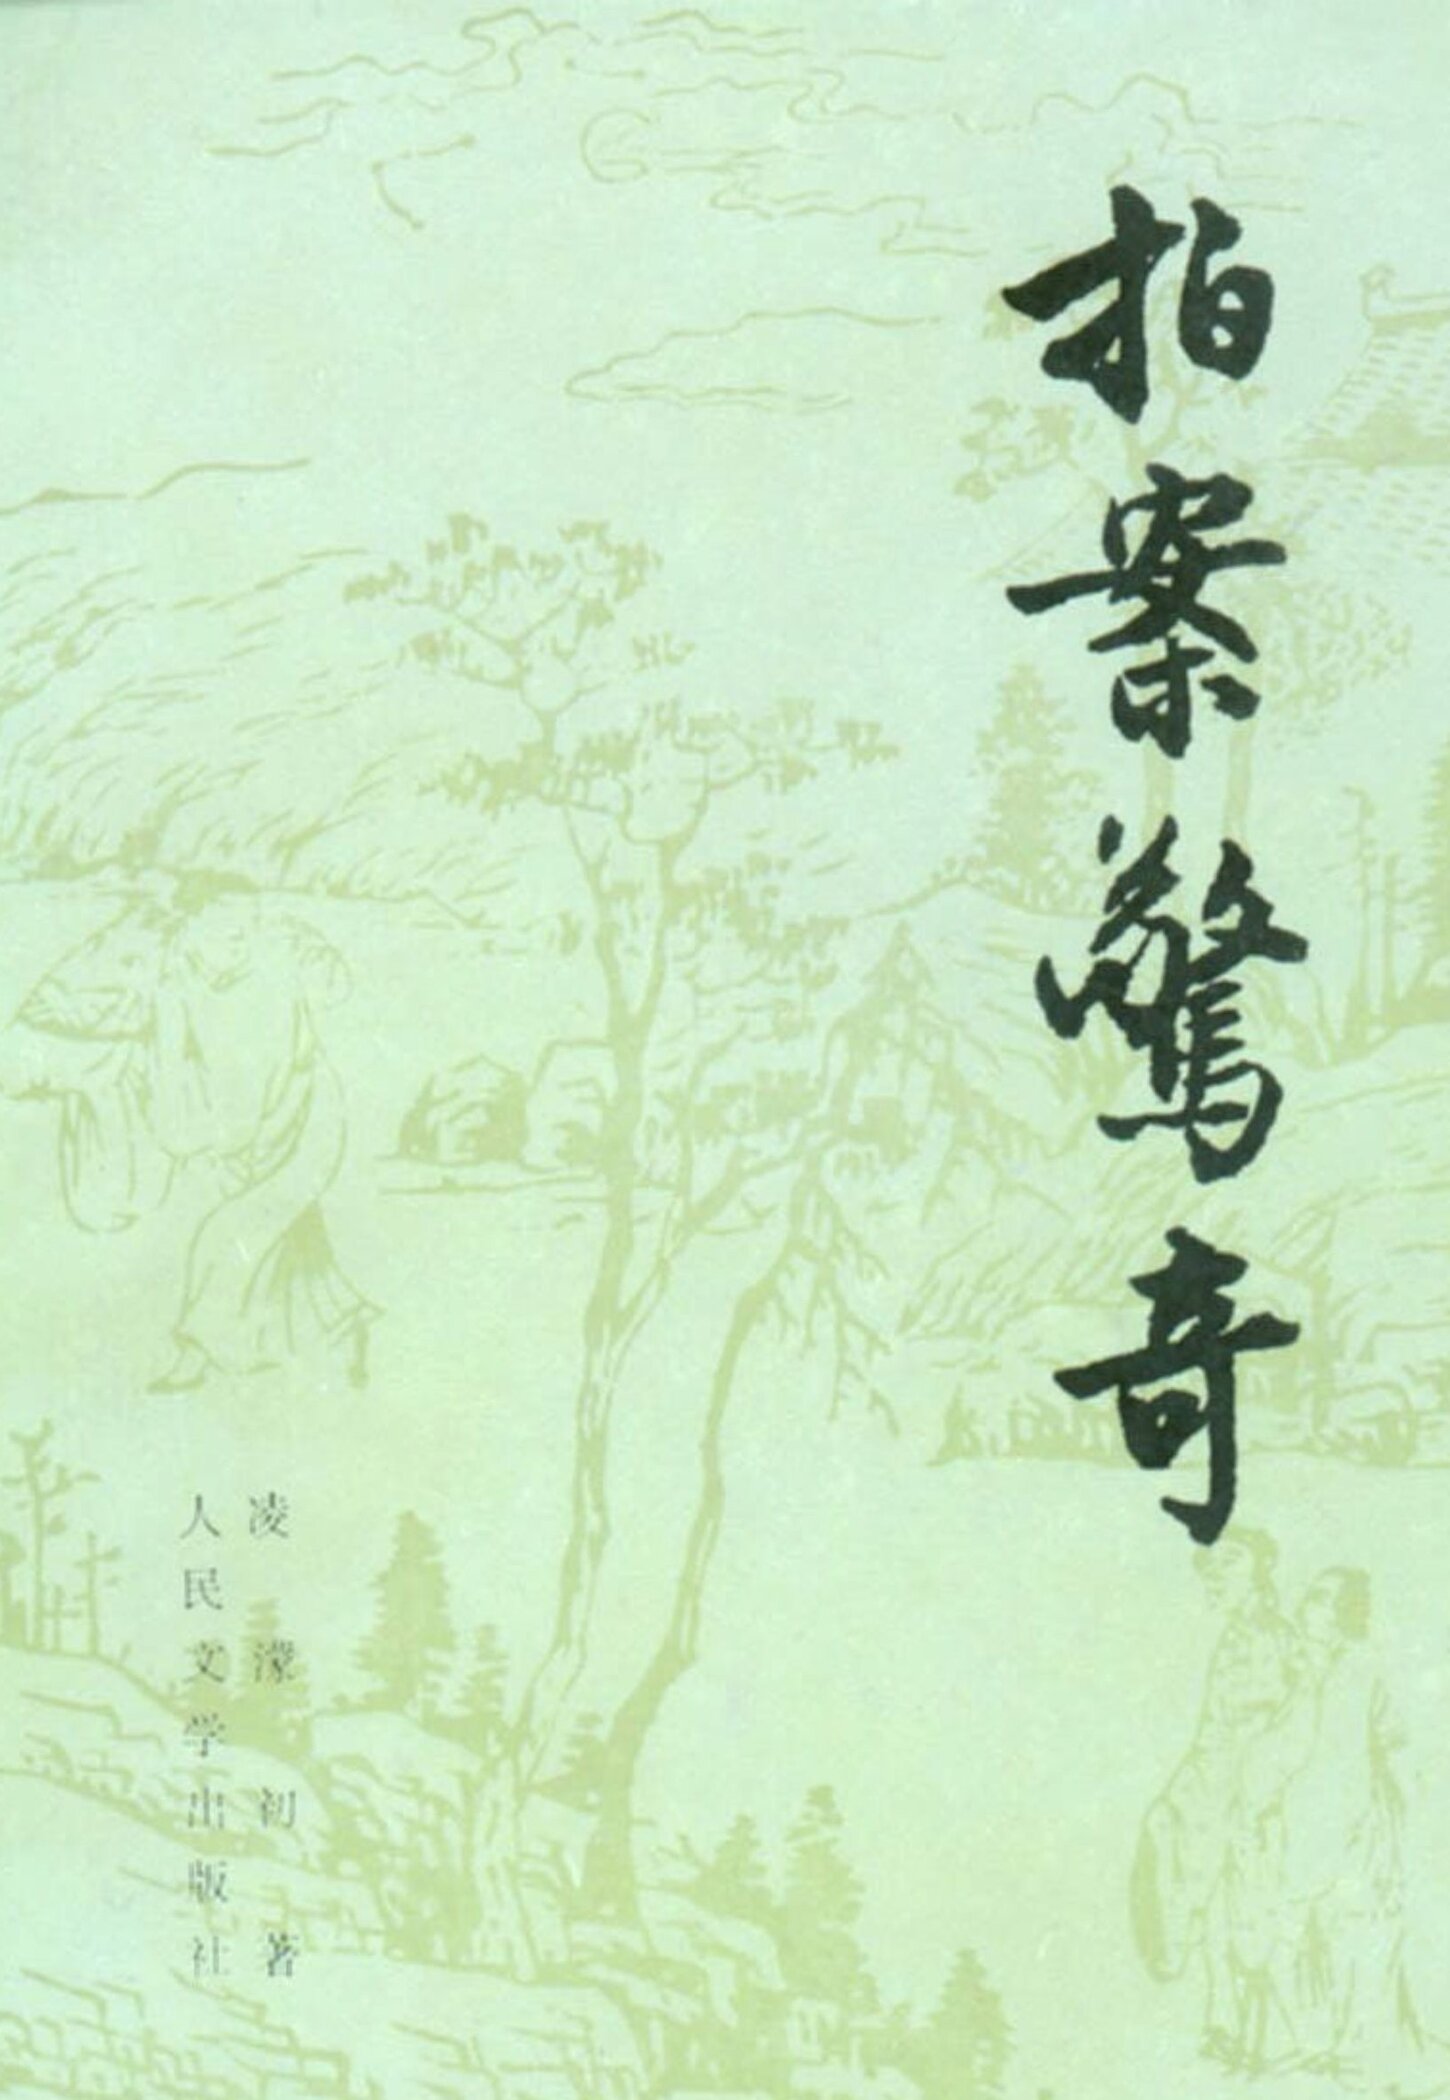 拍案驚奇
凌濛初著
人民文学出版社